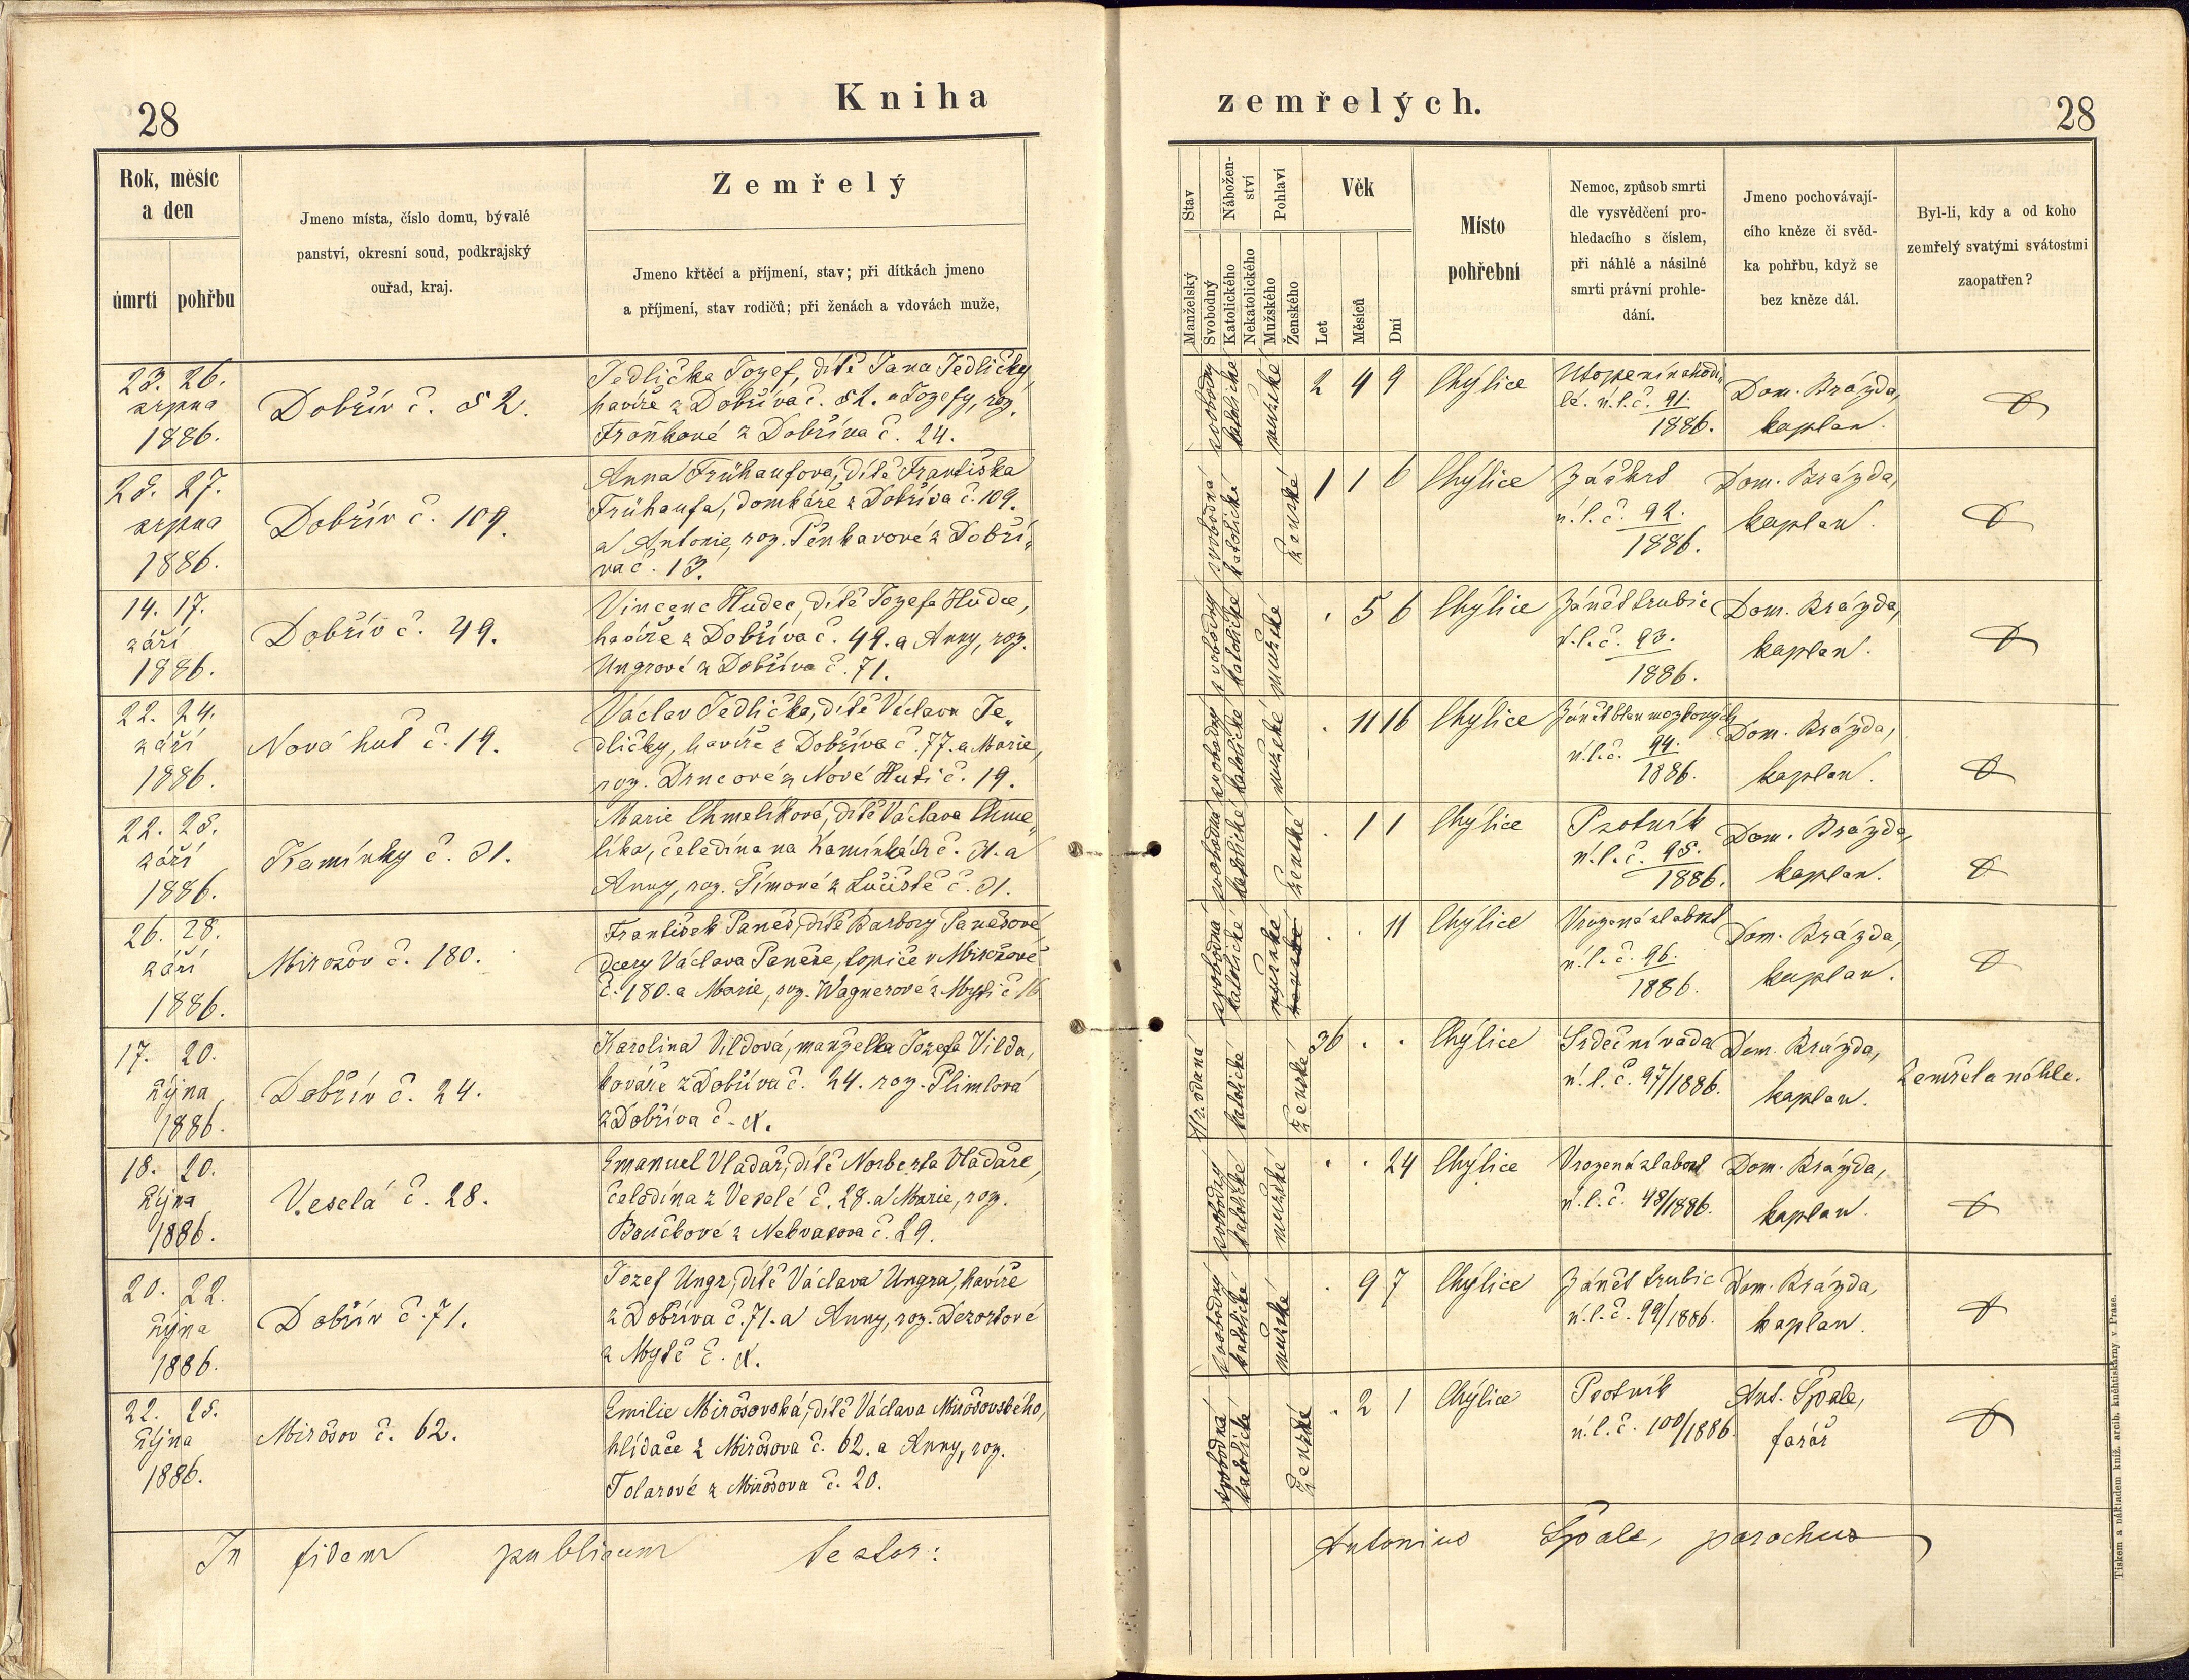 28
Kniha
Rok, měsíc
a den
úmrtí
pohřbu
Jmeno místa, číslo domu, bývalé
panství, okresní soud, podkrajský
ouřad, kraj.
Zemřelý
Jmeno křtěcí a příjmení, stav; při dítkách jmeno
a příjmení, stav rodičů; při ženách a vdovách muže,
23. 26.
srpna
1886.
Dobřív č. 82.
Jedlička Jozef, dítě Jana Jedličky,
havíře z Dobříva č. 82. a Jozefy, roz.
Froňkové z Dobříva č. 24.
25. 27.
srpna
1886.
Dobřív č. 109.
Anna Frühaufová, dítě Františka
Frühaufa, domkáře z Dobříva č. 109.
a Antonie, roz. Pěnkavové z Dobří-
va č. 13.
14. 17.
září
1886.
Dobřív č. 49.
Vincenc Hudec, dítě Jozefa Hudce,
havíře z Dobříva č. 49. a Anny, roz.
Ungrové z Dobříva č. 71.
22. 24.
září
1886.
Nová huť č. 19.
Václav Jedlička, dítě Václava Je-
dličky, havíře z Dobříva č. 77. a Marie,
roz. Drncové z Nové Huti č. 19.
22. 25.
září
1886.
Kamínky č. 31.
Marie Chmelíková, dítě Václava Chme-
líka, čeledína na Kamínkách č. 31. a
Anny, roz. Šímové z č. 31.
26. 28.
září
1886.
Mirošov č. 180.
František Paneš, dítě Barbory Panešové
dcery Václava Paneše, topiče v Mirošově
č. 180. a Marie, roz. Wagnerové z Mýti č. 16
17. 20.
října
1886.
Dobřív č. 24.
Karolina Vildová, manželka Jozefa Vilda,
kováře z Dobříva č. 24. roz. Plimlová
z Dobříva č.
18. 20.
října
1886.
Veselá č. 28.
Emanuel Vladař, dítě Norberta Vladaře,
čeledína z Veselé č. 28. a Marie, roz.
Boučkové z Nekvasova č. 29.
20. 22.
října
1886.
Dobřív č. 71.
Jozef Ungr, dítě Václava Ungra, havíře
z Dobříva č. 71. a Anny, roz. Dezortové
z Mýtě č.
22. 25.
října
1886.
Mirošov č. 62.
Emilie Mirošovská, dítě Václava Mirošovského,
hlídače z Mirošova č. 62. a Anny, roz.
Tolarové z Mirošova č. 20.
In fidem publicam testor:
zemřelých.
28
Stav
Nábožen-
ství
Pohlaví
Věk
Manželský
Svobodný
Katolického
Nekatolického
Mužského
Ženského
Let
Měsíců
Dní
Místo
pohřební
Nemoc, způsob smrti
dle vysvědčení pro-
hledacího s číslem,
při náhlé a násilné
smrti právní prohle-
dání.
Jmeno pochovávají-
cího kněze či svěd-
ka pohřbu, když se
bez kněze dál.
Byl-li, kdy a od koho
zemřelý svatými svátostmi
zaopatřen?
svobodný katolické mužské 2 4 9 Chýlice
Utopení nahodi-
lé. ú.l.č. 91.
1886.
Dom. Brázda,
kaplan.
svobodná katolické ženské 1 1 6 Chýlice
Záškrt
ú.l.č. 92.
1886.
Dom. Brázda,
kaplan.
svobodný katolické mužské . 5 6 Chýlice
Zánět trubic
ú.l.č. 93.
1886.
Dom. Brázda,
kaplan.
svobodný katolické mužské . 11 16 Chýlice
Zánět blan mozkových
ú.l.č. 94.
1886.
Dom. Brázda,
kaplan.
svobodná katolické ženské . 1 1 Chýlice
Psotník
ú.l.č. 95.
1886.
Dom. Brázda,
kaplan.
svobodná katolické mužské ženské . . 11 Chýlice
Vrozená slabost
ú.l.č. 96.
1886.
Dom. Brázda,
kaplan.
katolické ženské 36 . . Chýlice
Srdeční vada
ú.l.č. 97/1886.
Dom. Brázda,
kaplan.
Zemřela náhle.
svobodný katolické mužské . . 24 Chýlice
Vrozená slabost
ú.l.č. 98/1886.
Dom. Brázda,
kaplan.
svobodný katolické mužské . 9 7 Chýlice
Zánět trubic
ú.l.č. 99/1886.
Dom. Brázda,
kaplan.
svobodná katolické ženské . 2 1 Chýlice
Psotník
ú.l.č. 100/1886.
Ant. Špale,
farář
Antonius Špale, parochus
Tiskem a nákladem kníž. arcib. knihtiskárny v Praze.